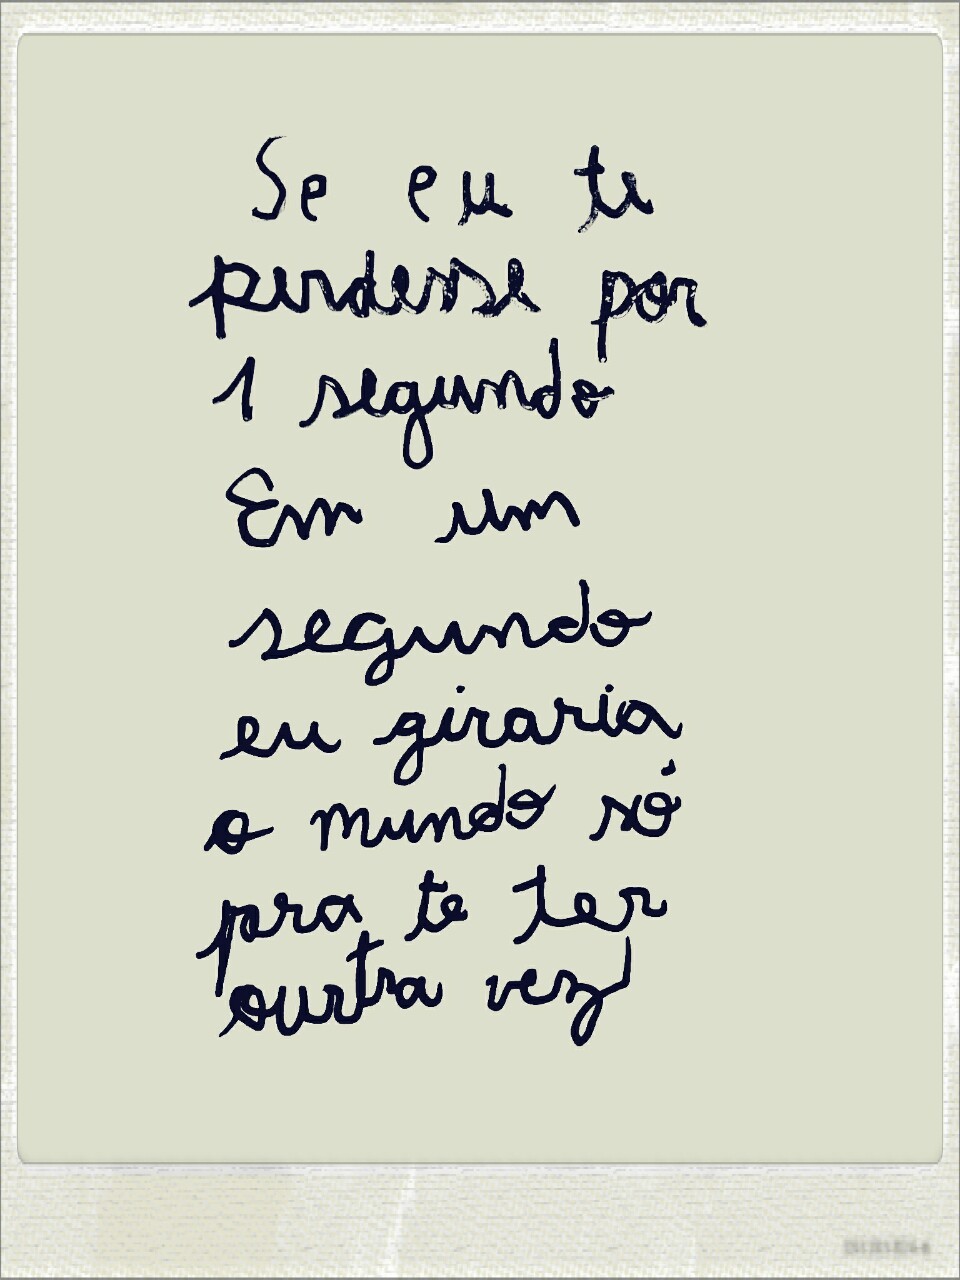 Se eu te
perdesse por
1 segundo
Em um
segundo
eu giraria
o mundo só
pra te ter
ourtra vez!